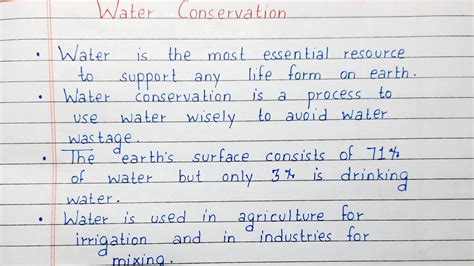 Water Conservation
• Water is the most essential resource
to support any life form on earth.
• Water conservation is a process to
use water wisely to avoid water
wastage.
• The earth's surface consists of 71%
of water but only 3% is drinking
water.
• Water is used in agriculture for
irrigation and in industries for
mixing.